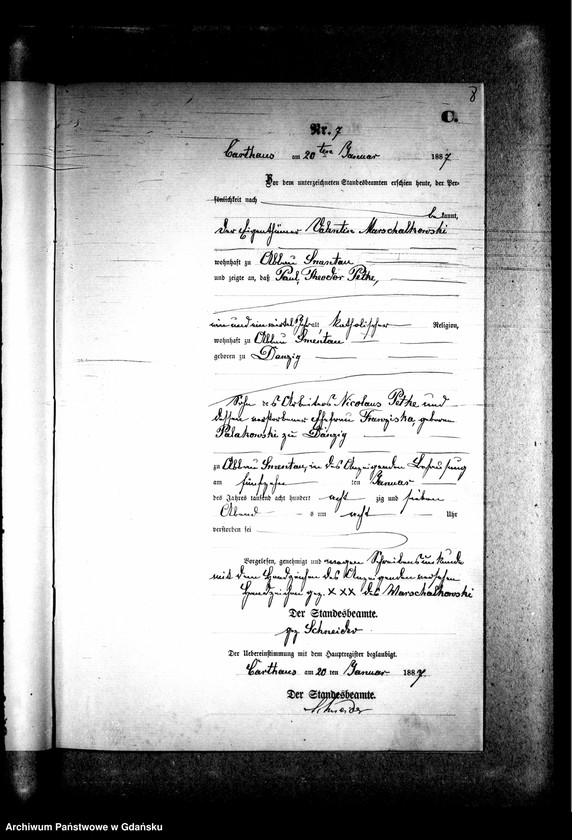 8
C.
Nr. 7
Carthaus am 20ten Januar 1887
Vor dem unterzeichneten Standesbeamten erschien heute, der Per-
sönlichkeit nach
bekannt,
der Eigenthümer Valentin Marschalkowski
wohnhaft zu Abbau Smentau
und zeigte an, daß Paul, Theodor Petke,
ein und ein viertel Jahr alt katholischer Religion,
wohnhaft zu Abbau Smentau
geboren zu Danzig
Sohn des Arbeiters Nicolaus Petke und
dessen verstorbener Ehefrau Franziska, geborenen
Palakowski zu Danzig
zu Abbau Smentau, in des Anzeigenden Behausung
am fünfzehnten Januar
des Jahres tausend acht hundert achtzig und sieben
Abends um acht Uhr
verstorben sei
Vorgelesen, genehmigt und wegen Schreibensunkunde
mit dem Handzeichen des Anzeigenden versehen
Handzeichen gez. XXX des Marschalkowski
Der Standesbeamte.
gez Schneider
Der Uebereinstimmung mit dem Hauptregister beglaubigt.
Carthaus am 20 ten Januar 1887
Der Standesbeamte.
Schneider
Archiwum Państwowe w Gdańsku